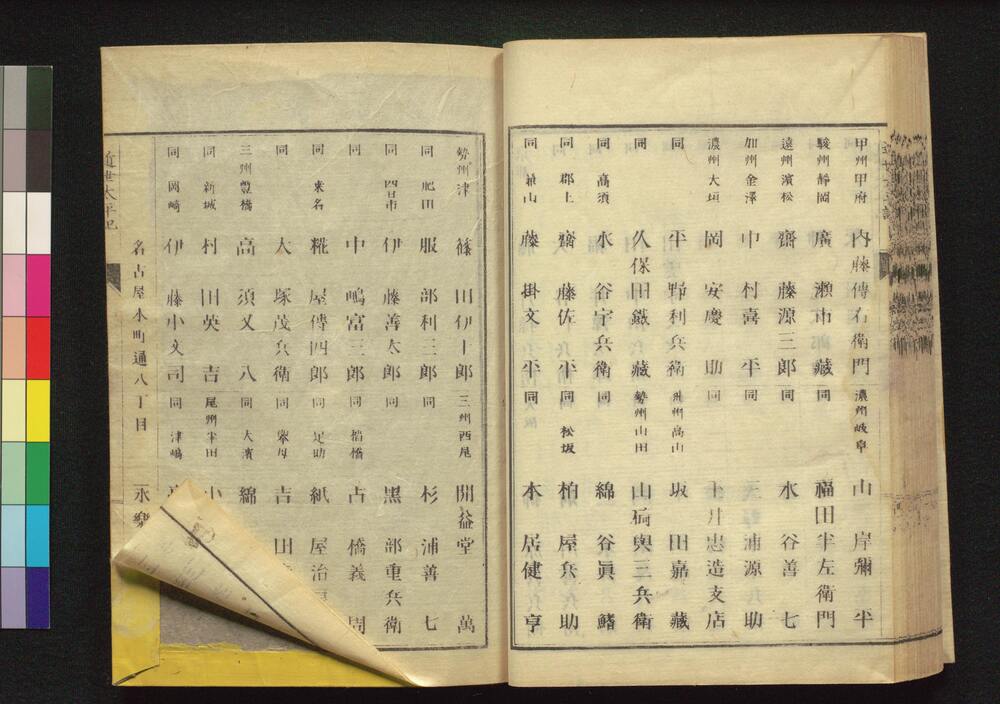 甲州甲府 内藤傳右衛門
駿州靜岡 廣瀨市藏
遠州濱松 齋藤源三郎
加州金澤 中村喜平
濃州大垣 岡安慶助
同 平野利兵衛
同 久保田鐵藏
同 高須 水谷宇兵衛
同 郡上 齋藤佐平
同 藤掛文平
濃州岐阜 山岸彌平
同 福田半左衛門
同 水谷善七
同 三浦源兵助
同 土井忠造支店
飛州高山 坂田嘉藏
勢州山田 山崎與三兵衛
同 綿谷眞鰭
同 松坂 柏屋兵助
同 本居健亨
勢州津 篠田伊十郎
同 肥田 服部利三郎
同 四日市 伊藤善太郎
同 中嶋富三郎
同 桒名 糀屋傳四郎
同 大塚茂兵衛
三州豐橋 高須又八
同 新城 村田英吉
同 岡崎 伊藤小文司
三州西尾 開益堂萬
同 杉浦善七
同 黑部重兵衛
同 棚橋 占橋義周
同 足助 紙屋治
同 擧母 吉田
同 大濱 綿
尾州半田 小
同 津嶋
名古屋本町通八丁目 永樂
近世太平記